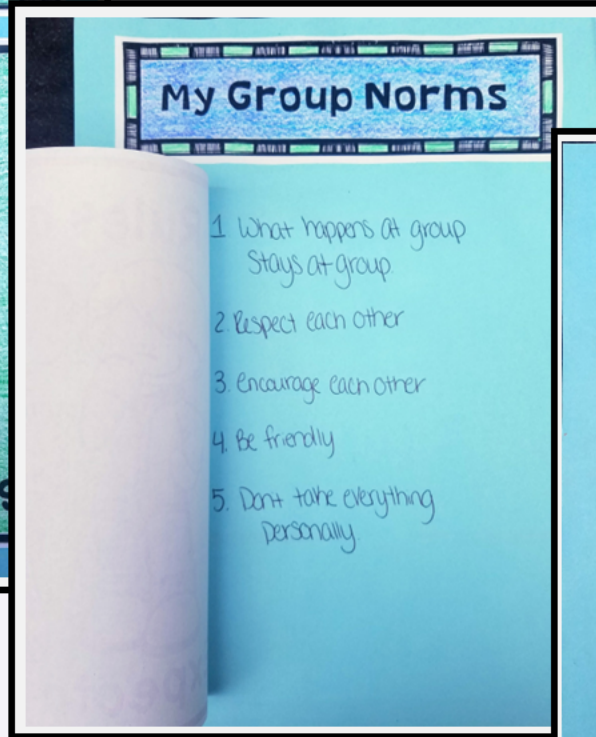 My Group Norms
1 What happens at group
Stays at group.
2. Respect each other
3. encourage each other
4. Be friendly
5. Dont take everything
personally.